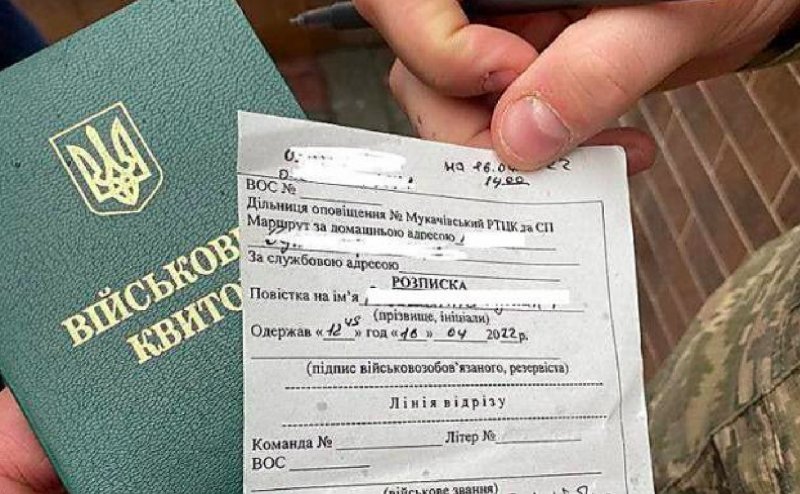 ВІЙСЬКОВ
КВИТО
на 16.04 22
14 00
ВОС №
Дільниця оповіщення № Мукачівський РТЦК та СП
Маршрут за домашньою адресою
За службовою адресою
РОЗПИСКА
Повістка на ім'я
(прізвище, ініціали)
Одержав «12 45» год «16» 04 2022р.
(підпис військовозобов'язаного, резервіста)
Лінія відрізу
Команда № Літер №
ВОС
(військове звання)